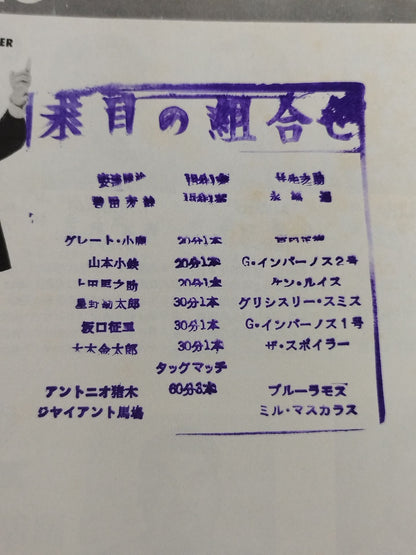 ER
業目の組合せ
15分1本
15分1本
グレート・小鹿 20分1本
山本小鉄 20分1本 G・インパーノス2号
上田馬之助 20分1本 ケン・ルイス
星野勘太郎 30分1本 グリシスリー・スミス
坂口征二 30分1本 G・インパーノス1号
大木金太郎 30分1本 ザ・スポイラー
タッグマッチ
アントニオ猪木 60分3本 ブルーラモス
ジャイアント馬場 ミル・マスカラス